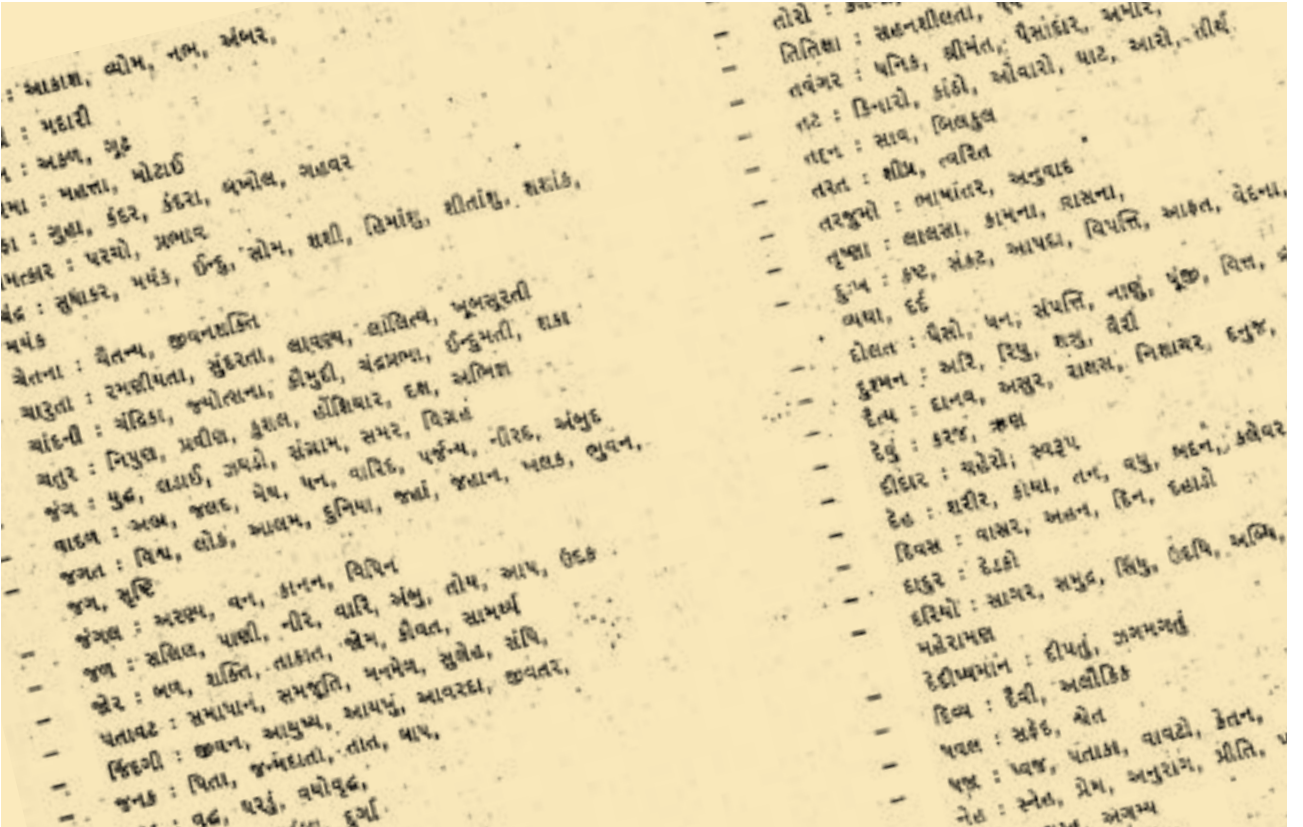 : આકાશ, વ્યોમ, નભ, અંબર,
: મદારી
: અકળ, ગૂઢ
: મહત્તા, મોટાઈ
: ગુહા, કંદર, કંદરા, બખોલ, ગહવર
: પરચો, પ્રભાવ
: સુધાકર, મયંક, ઈન્દુ, સોમ, શશી, હિમાંશુ, શીતાંશુ, શશાંક,
મયંક
ચેતના : ચૈતન્ય, જીવનશક્તિ
ચારુતા : રમણીયતા, સુંદરતા, લાવણ્ય, લાલિત્ય, ખૂબસૂરતી
ચાંદની : ચંદ્રિકા, જ્યોત્સના, કૌમુદી, ચંદ્રપ્રભા, ઈન્દુમતી, શકા
ચતુર : નિપુણ, પ્રવીણ, કુશલ, હોંશિયાર, દક્ષ, અભિજ્ઞ
જંગ : યુદ્ધ, લડાઈ, ઝઘડો, સંગ્રામ, સમર, વિગ્રહ
વાદળ : અભ્ર, જલદ, મેઘ, ઘન, વારિદ, પર્જન્ય, નીરદ, અંબુદ
જગત : વિશ્વ, લોક, આલમ, દુનિયા, જહાં, જહાન, ખલક, ભુવન,
જગ, સૃષ્ટિ
જંગલ : અરણ્ય, વન, કાનન, વિપિન
જળ : સલિલ, પાણી, નીર, વારિ, અંબુ, તોય, આપ, ઉદક
જોર : બળ, શક્તિ, તાકાત, જોમ, કૌવત, સામર્થ્ય
પતાવટ : સમાધાન, સમજૂતિ, મનમેળ, સુલેહ, સંધિ,
જિંદગી : જીવન, આયુષ્ય, આયખું, આવરદા, જીવતર,
જનક : પિતા, જન્મદાતા, તાત, બાપ,
: વૃદ્ધ, ઘરડું, વયોવૃદ્ધ,
દુર્ગા
તોરો :
તિતિક્ષા : સહનશીલતા,
તવંગર : ધનિક, શ્રીમંત, પૈસાદાર, અમીર,
તટ : કિનારો, કાંઠો, ઓવારો, ઘાટ, આરો, તીર્થ
તદ્દન : સાવ, બિલકુલ
તરત : શીઘ્ર, ત્વરિત
તરજુમો : ભાષાંતર, અનુવાદ
તૃષ્ણા : લાલસા, કામના, વાસના,
દુઃખ : કષ્ટ, સંકટ, આપદા, વિપત્તિ, આફત, વેદના,
વ્યથા, દર્દ
દોલત : પૈસો, ધન, સંપત્તિ, નાણું, પૂંજી, વિત્ત,
દુશ્મન : અરિ, રિપુ, શત્રુ, વૈરી
દૈત્ય : દાનવ, અસુર, રાક્ષસ, નિશાચર, દનુજ,
દેવું : કરજ, ઋણ
દીદાર : ચહેરો; સ્વરૂપ
દેહ : શરીર, કાયા, તન, વપુ, બદન, કલેવર
દિવસ : વાસર, અહન, દિન, દહાડો
દાદુર : દેડકો
દરિયો : સાગર, સમુદ્ર, સિંધુ, ઉદધિ, અબ્ધિ,
મહેરામણ
દેદીપ્યમાન : દીપતું, ઝગમગતું
દિવ્ય : દૈવી, અલૌકિક
ધવલ : સફેદ, શ્વેત
ધજા : ધ્વજ, પતાકા, વાવટો, કેતન,
નેહ : સ્નેહ, પ્રેમ, અનુરાગ, પ્રીતિ,
અગમ્ય